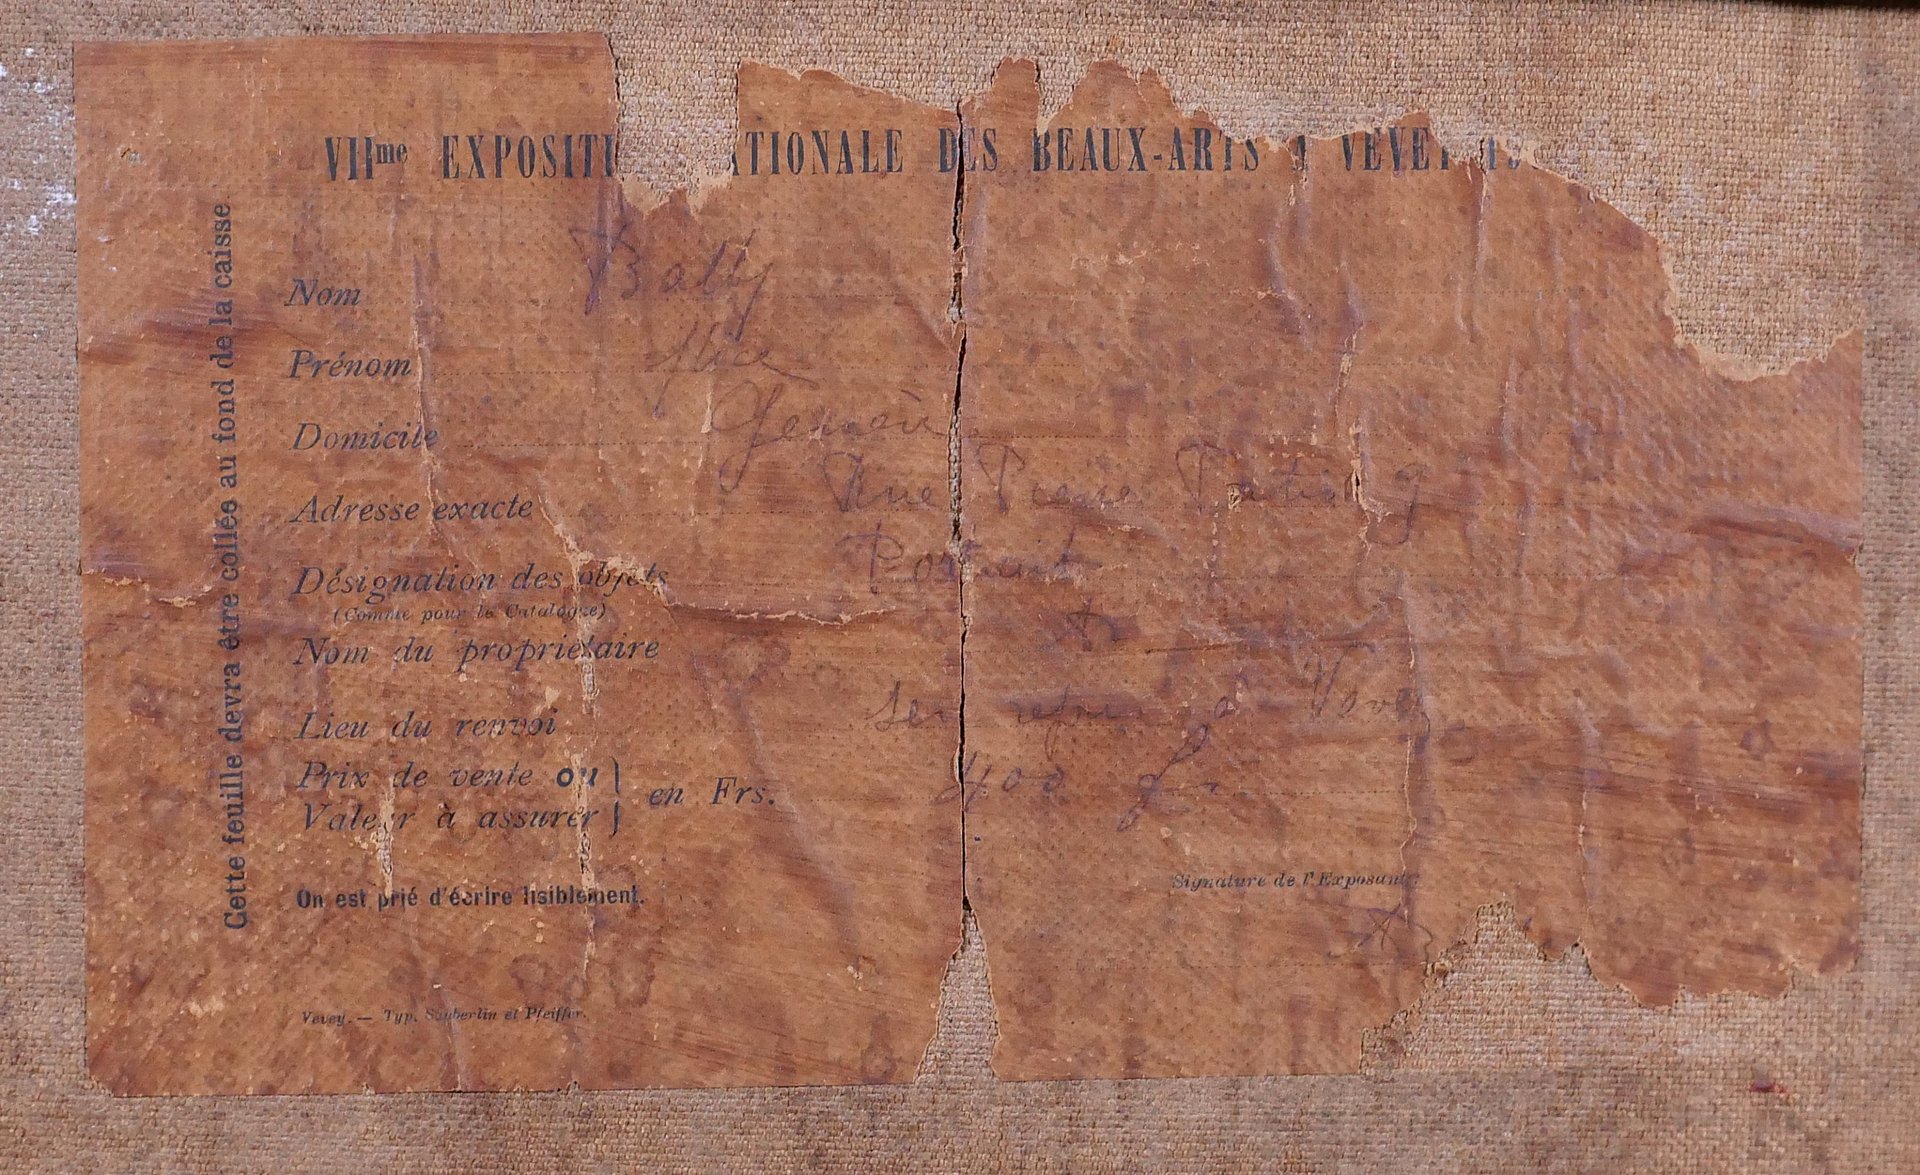 VIIme EXPOSITI ATIONALE DES BEAUX-ARTS VEVEY 19
Cette feuille devra être collée au fond de la caisse
Nom Bally
Prénom Alice
Domicile Genève
Adresse exacte Rue Pierre Fatio 9
Désignation des objets Portrait
(Comme pour le Catalogue)
Nom du propriétaire
Lieu du renvoi à Vevey
Prix de vente ou
Valeur à assurer } en Frs. 400 fr
On est prié d'écrire lisiblement.
Signature de l'Exposant:
Vevey. — Typ. Säuberlin et Pfeiffer.